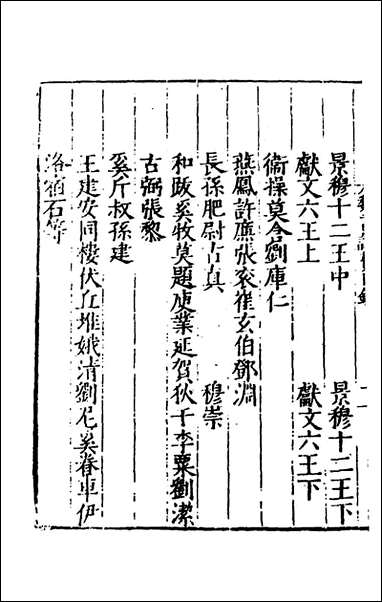 景穆十二王中 景穆十二王下
獻文六王上 獻文六王下
衞操莫含劉庫仁
燕鳳許廉張衮崔玄伯鄧淵
長孫肥尉古真 穆崇
和跋奚牧莫題庾業延賀狄干李栗劉潔
古弼張黎
奚斤叔孫建
王建安同樓伏丘堆娥清劉尼奚眷車伊
洛宿石等